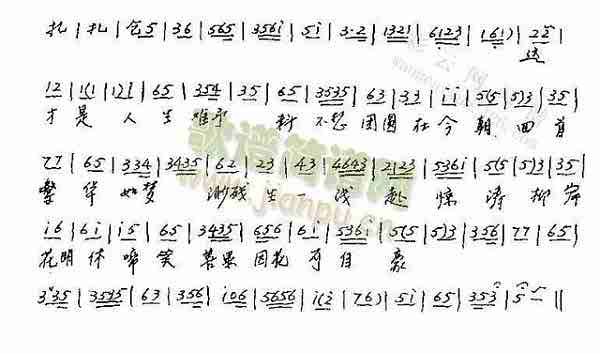 扎 | 扎 | 仓5 | 36 | 565 | 356i | 5i | 3·2 | 1321 | 6123 | 161) | 22 |
这
12 | 1(1 | 12)i | 65 | 354 | 35 | 65 | 3535 | 63 | 33 | ii | 5(5 | 5)3 | 35 |
才是 人生难 料 不 团圆在今朝 回首
77 | 65 | 334 | 3435 | 62 | 23 | 43 | 4643 | 2123 | 536i | 5(5 | 5)3 | 35 |
繁华如梦 渺 残生一浅 惊涛柳岸
i6 | 6i | i5 | 65 | 3435 | 656 | 6i | 536i | 5(5 | 5)3 | 356 | 77 | 65 |
花明休啼笑 善果因花可自豪
3·35 | 3535 | 63 | 356 | i06 | 5656 | i(2 | 76) | 5i | 65 | 353 | 5 — ‖
歌谱简谱网
www.jianpu.cn